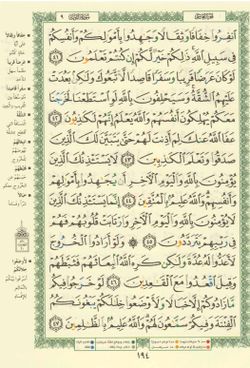 ٱنفِرُوا۟ خِفَافًا وَثِقَالًا وَجَٰهِدُوا۟ بِأَمْوَٰلِكُمْ وَأَنفُسِكُمْ
فِى سَبِيلِ ٱللَّهِ ذَٰلِكُمْ خَيْرٌ لَّكُمْ إِن كُنتُمْ تَعْلَمُونَ ٤١
لَوْ كَانَ عَرَضًا قَرِيبًا وَسَفَرًا قَاصِدًا لَّٱتَّبَعُوكَ وَلَٰكِنۢ بَعُدَتْ
عَلَيْهِمُ ٱلشُّقَّةُ وَسَيَحْلِفُونَ بِٱللَّهِ لَوِ ٱسْتَطَعْنَا لَخَرَجْنَا
مَعَكُمْ يُهْلِكُونَ أَنفُسَهُمْ وَٱللَّهُ يَعْلَمُ إِنَّهُمْ لَكَٰذِبُونَ ٤٢
عَفَا ٱللَّهُ عَنكَ لِمَ أَذِنتَ لَهُمْ حَتَّىٰ يَتَبَيَّنَ لَكَ ٱلَّذِينَ
صَدَقُوا۟ وَتَعْلَمَ ٱلْكَٰذِبِينَ ٤٣ لَا يَسْتَـْٔذِنُكَ ٱلَّذِينَ
يُؤْمِنُونَ بِٱللَّهِ وَٱلْيَوْمِ ٱلْءَاخِرِ أَن يُجَٰهِدُوا۟ بِأَمْوَٰلِهِمْ
وَأَنفُسِهِمْ وَٱللَّهُ عَلِيمٌۢ بِٱلْمُتَّقِينَ ٤٤ إِنَّمَا يَسْتَـْٔذِنُكَ ٱلَّذِينَ
لَا يُؤْمِنُونَ بِٱللَّهِ وَٱلْيَوْمِ ٱلْءَاخِرِ وَٱرْتَابَتْ قُلُوبُهُمْ فَهُمْ
فِى رَيْبِهِمْ يَتَرَدَّدُونَ ٤٥ وَلَوْ أَرَادُوا۟ ٱلْخُرُوجَ
لَأَعَدُّوا۟ لَهُۥ عُدَّةً وَلَٰكِن كَرِهَ ٱللَّهُ ٱنۢبِعَاثَهُمْ فَثَبَّطَهُمْ
وَقِيلَ ٱقْعُدُوا۟ مَعَ ٱلْقَٰعِدِينَ ٤٦ لَوْ خَرَجُوا۟ فِيكُم
مَّا زَادُوكُمْ إِلَّا خَبَالًا وَلَأَوْضَعُوا۟ خِلَٰلَكُمْ يَبْغُونَكُمُ
ٱلْفِتْنَةَ وَفِيكُمْ سَمَّٰعُونَ لَهُمْ وَٱللَّهُ عَلِيمٌۢ بِٱلظَّٰلِمِينَ ٤٧
١٩٤